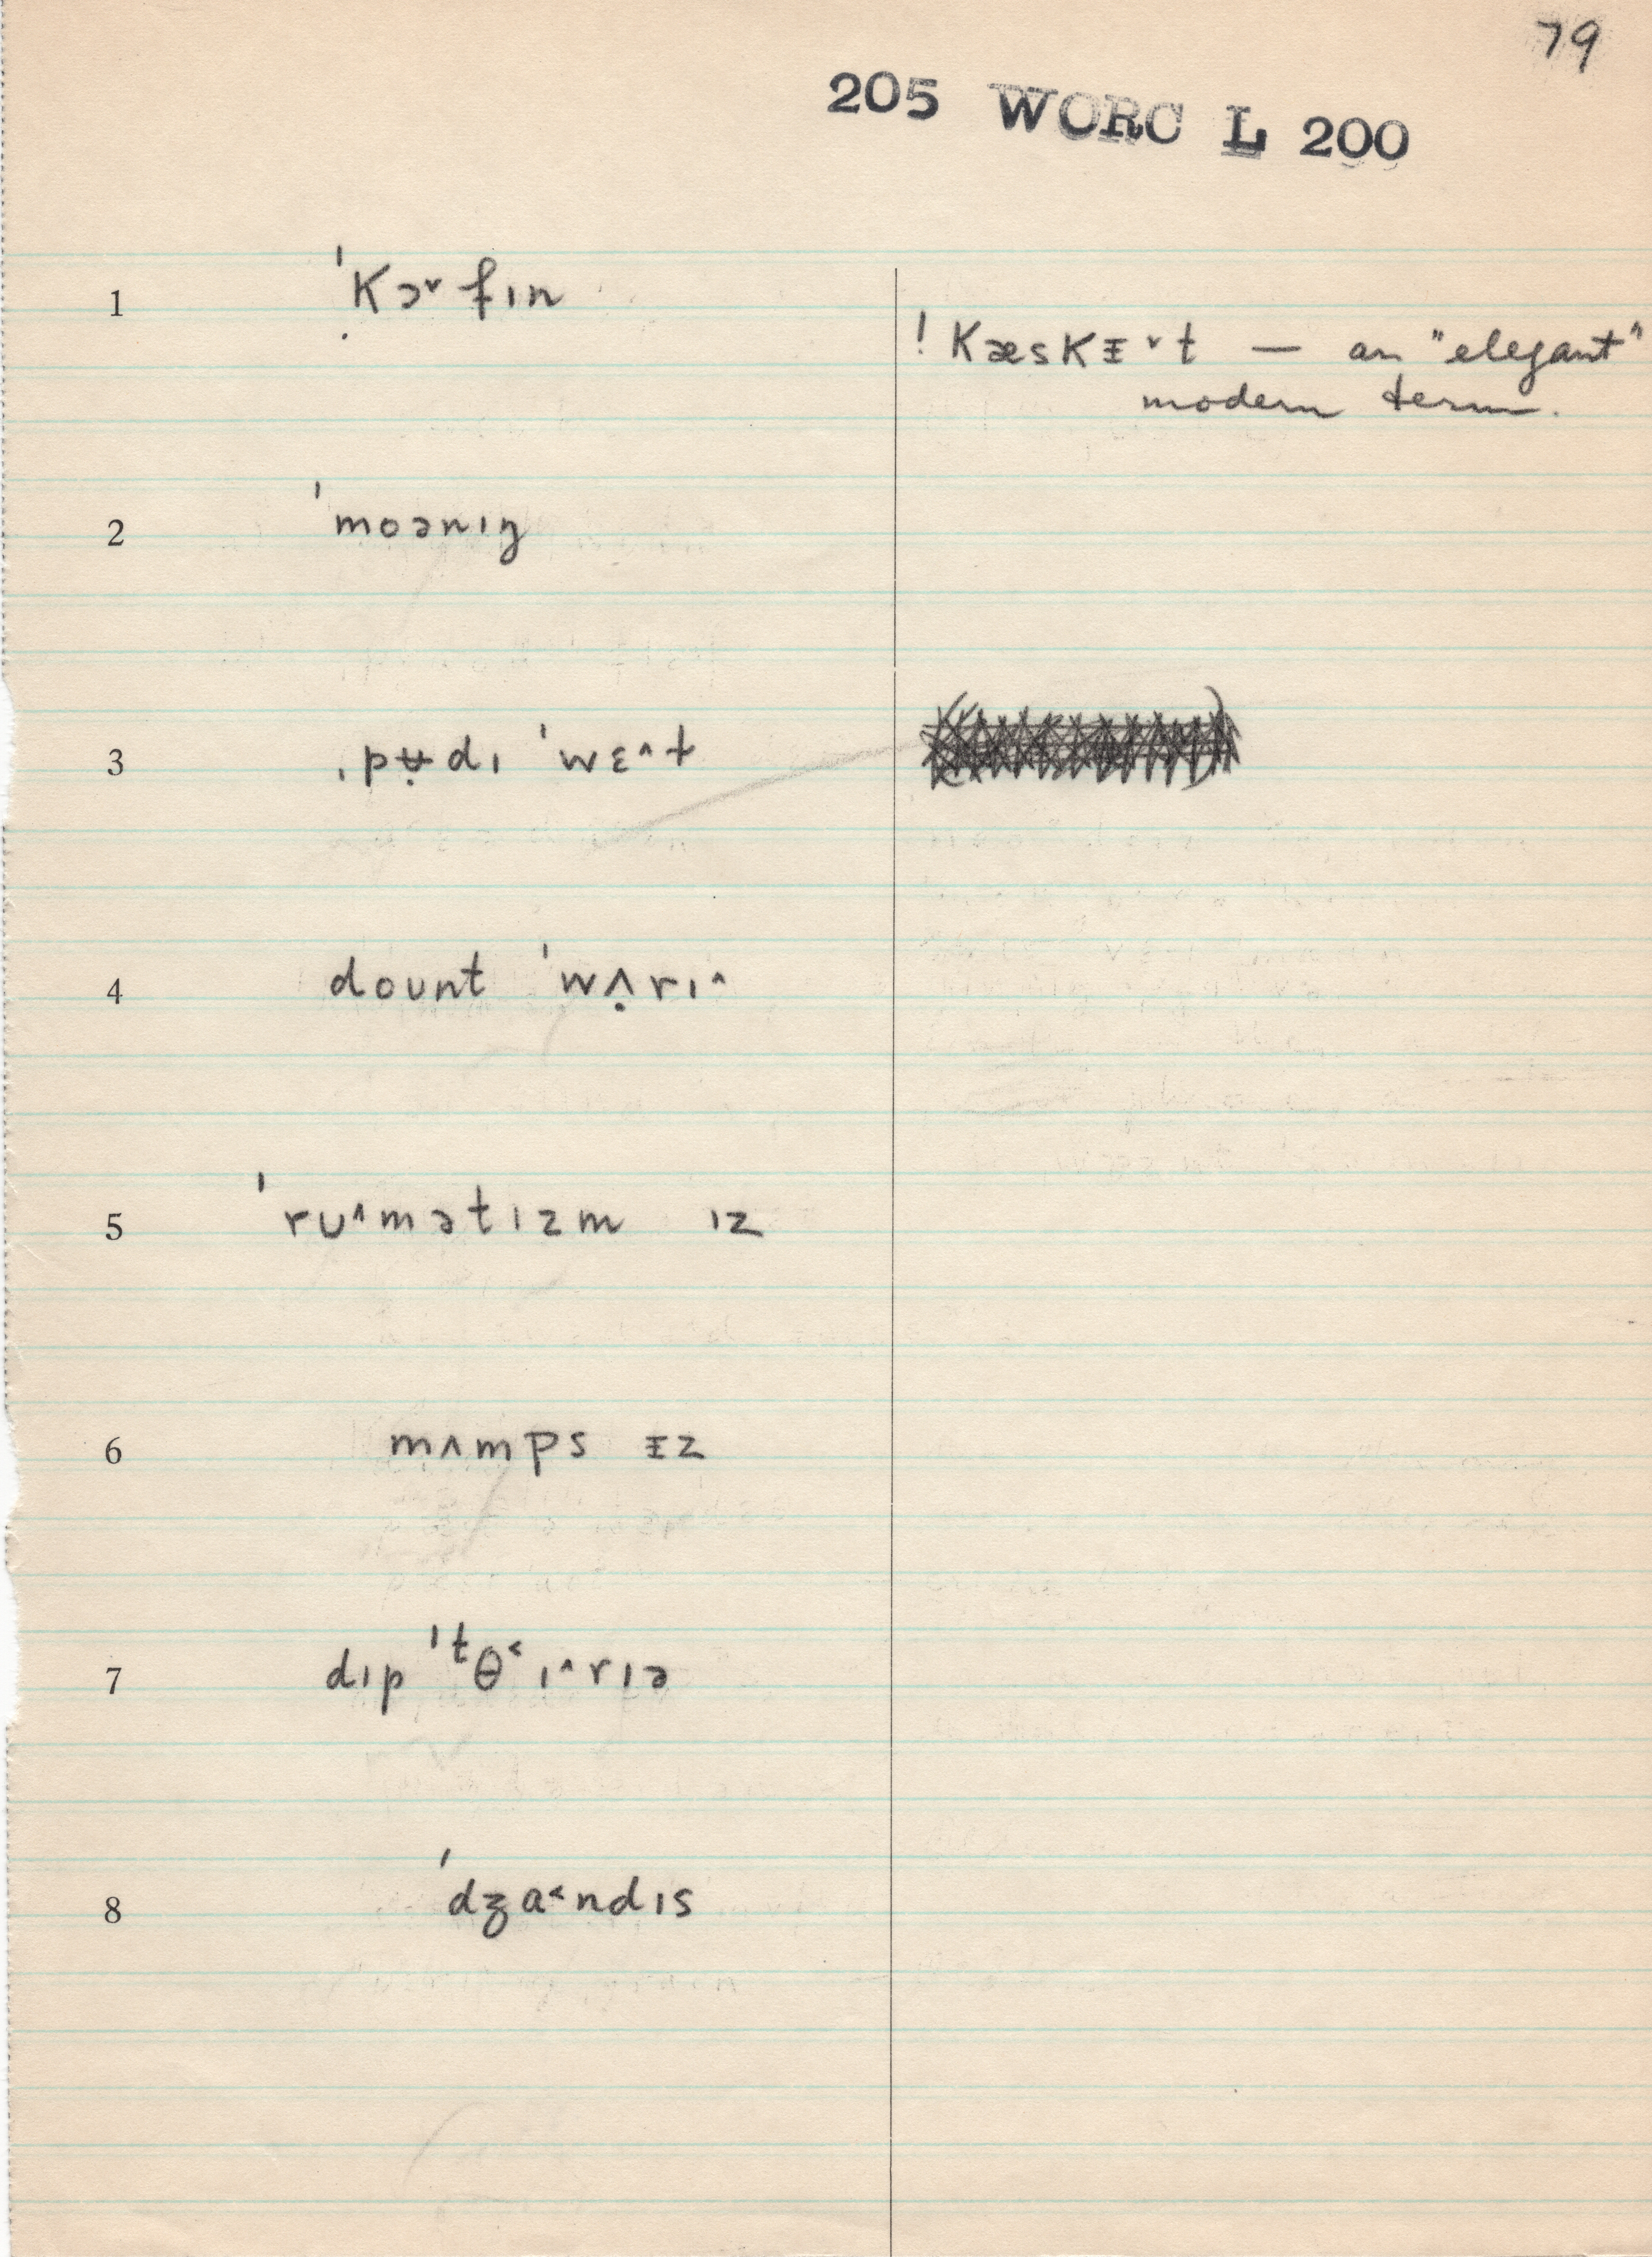 79
205 WORC L 200
1 ˈkɔ˅fɪn
! kæskᵻ˅t — an "elegant"
modern term.
2 ˈmoənɪŋ
3 ˌpʉ̣dɪ ˈwɛ^t
4 doʊnt ˈwʌ̣rɪ^
5 ˈru^mətɪzm ɪz
6 mʌmps ᵻz
7 dɪp ˈᵗθ˂ɪ^rɪə
8 ˈdʒa˂ndɪs